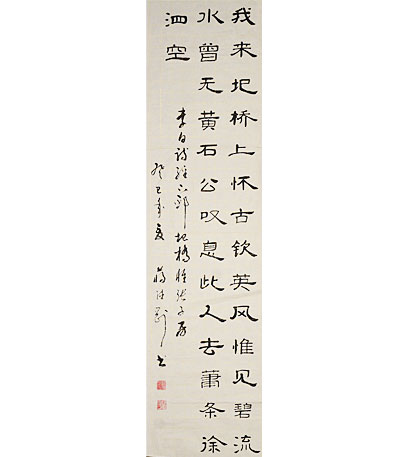 我来圯桥上怀古钦英风惟见碧流
水曾无黄石公叹息此人去萧条徐
泗空
李白诗经下邳圯橋怀张子房
癸巳年夏 书